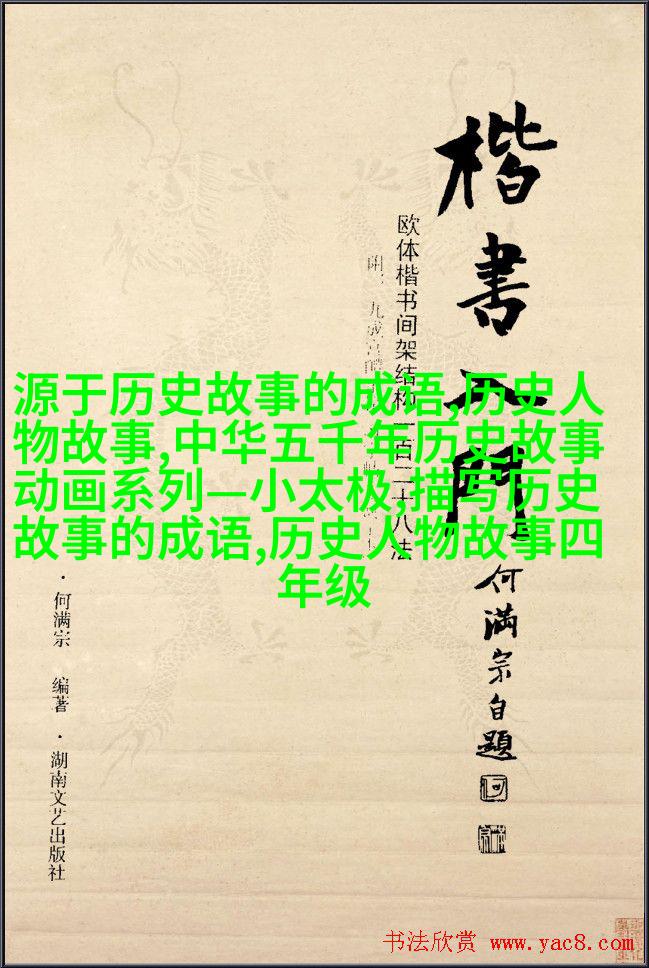 楷書入門
欧体楷书间架结构一百二十八法
何满宗自题
源于历史故事的成语,历史人
物故事,中华五千年历史故事
动画系列—小太极,描写历史
故事的成语,历史人物故事四
年级
·何满宗 编著·湖南文艺出版社
书法欣赏 www.yac8.com